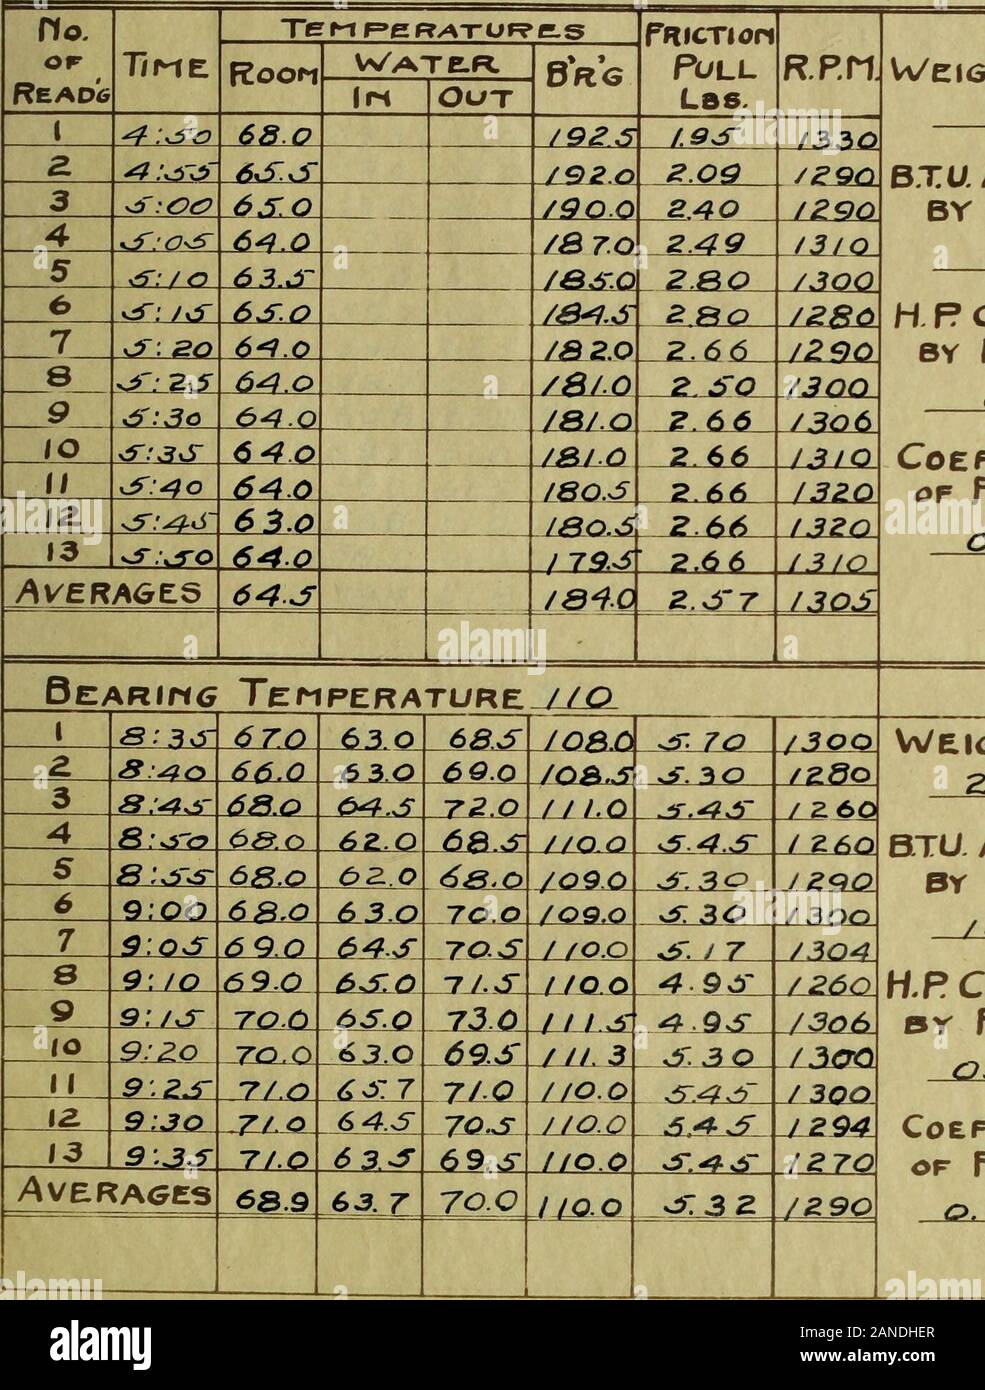 No. OF READ'G TIME TEMPERATURES ROOM WATER IN OUT B'R'G FRICTION PULL LBS. R.P.M. WEIG
1 4:50 68.0 192.5 1.95 1330
2 4:55 65.5 192.0 2.09 1290 B.T.U.
3 5:00 65.0 190.0 2.40 1290 BY
4 5:05 64.0 187.0 2.49 1310
5 5:10 63.5 185.0 2.80 1300
6 5:15 65.0 184.5 2.80 1280 H.P. C
7 5:20 64.0 182.0 2.66 1290 BY
8 5:25 64.0 181.0 2.50 1300
9 5:30 64.0 181.0 2.66 1306
10 5:35 64.0 181.0 2.66 1310 COEF
11 5:40 64.0 180.5 2.66 1320 OF F
12 5:45 63.0 180.5 2.66 1320
13 5:50 64.0 179.5 2.66 1310 0
AVERAGES 64.5 184.0 2.57 1305
BEARING TEMPERATURE 110
1 8:35 67.0 63.0 68.5 108.0 5.70 1300 WEIG
2 8:40 66.0 63.0 69.0 108.5 5.30 1280 2
3 8:45 68.0 64.5 72.0 111.0 5.45 1260
4 8:50 68.0 62.0 68.5 110.0 5.45 1260 B.T.U.
5 8:55 68.0 62.0 68.0 109.0 5.30 1290 BY
6 9:00 68.0 63.0 70.0 109.0 5.30 1300
7 9:05 69.0 64.5 70.5 110.0 5.17 1304
8 9:10 69.0 65.0 71.5 110.0 4.95 1260 H.P. C
9 9:15 70.0 65.0 73.0 111.5 4.95 1306 BY F
10 9:20 70.0 63.0 69.5 111.3 5.30 1300 0.
11 9:25 71.0 65.7 71.0 110.0 5.45 1300
12 9:30 71.0 64.5 70.5 110.0 5.45 1294 COEF
13 9:35 71.0 63.5 69.5 110.0 5.45 1270 OF F
AVERAGES 68.9 63.7 70.0 110.0 5.32 1290 0.
alamy
Image ID: 2ANDHER
www.alamy.com